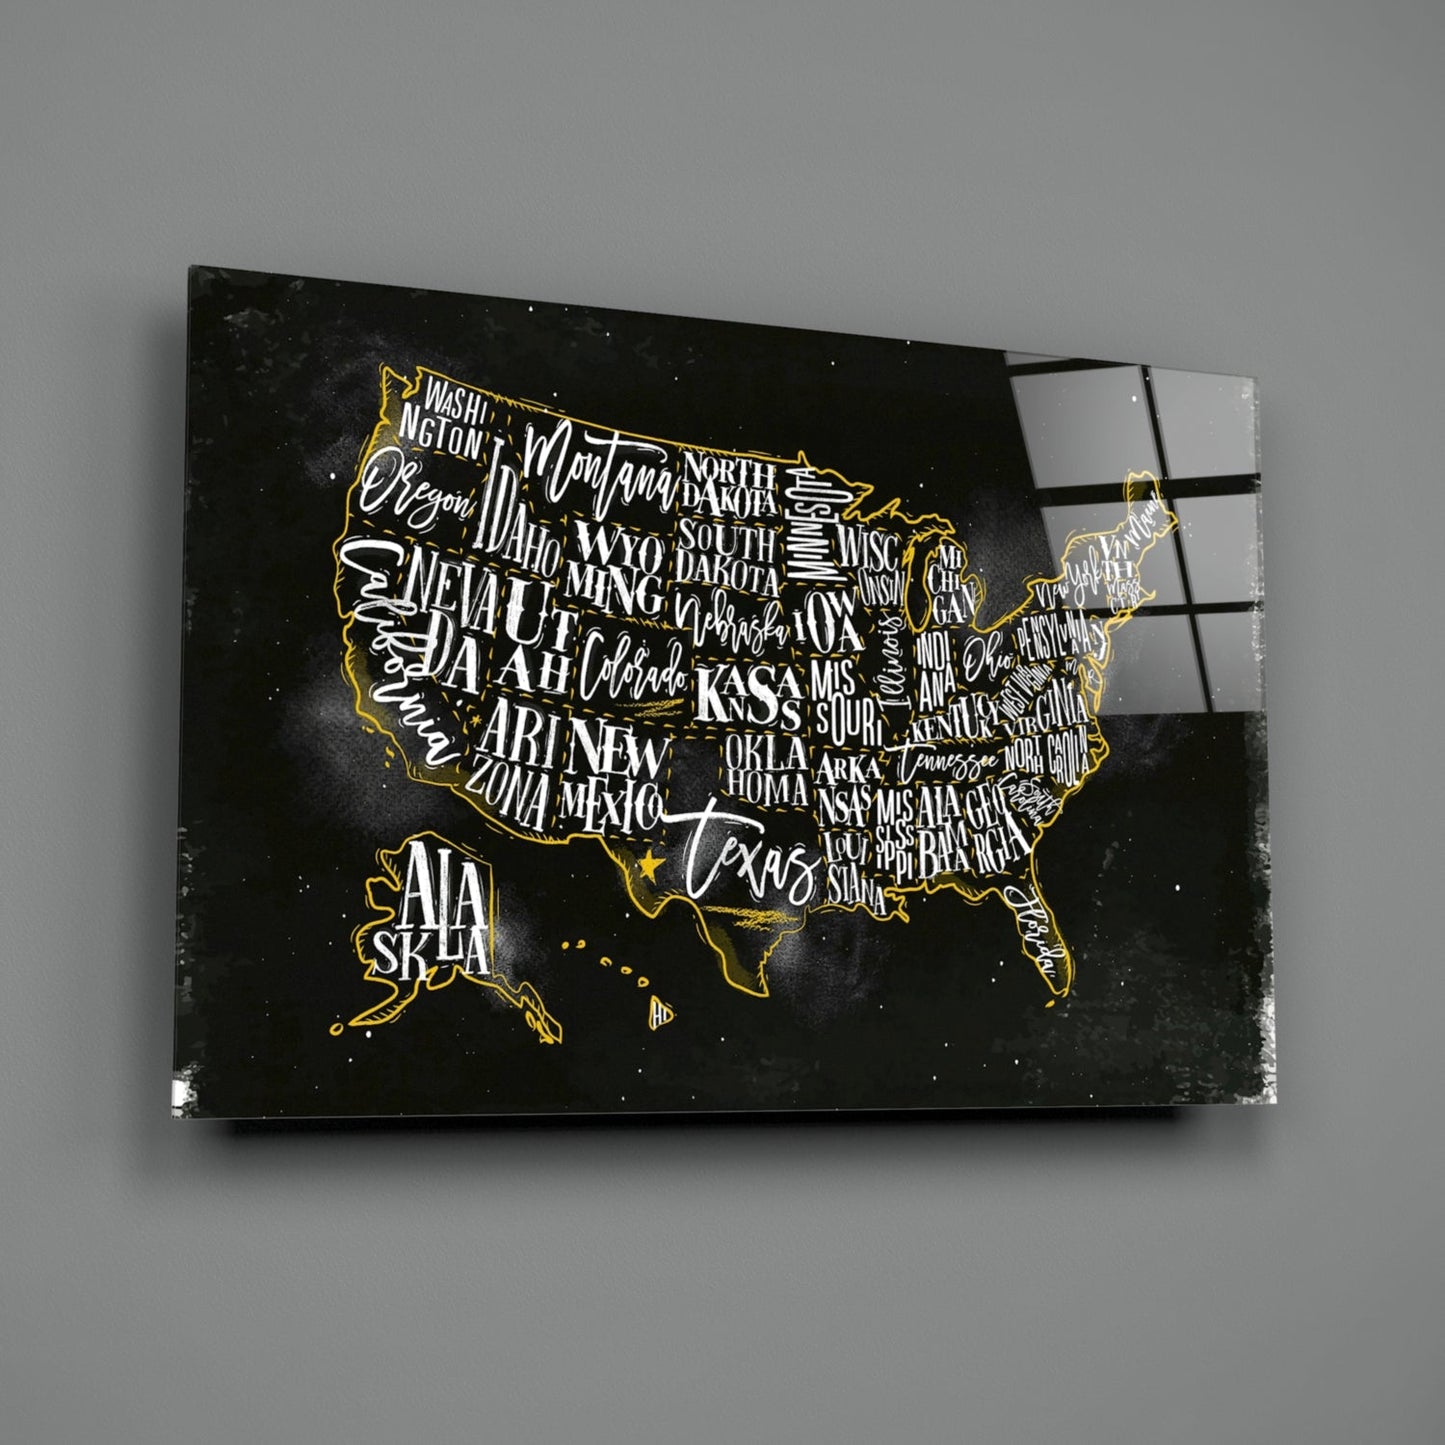 WASHI
NGTON
Oregon
California
IDAHO
NEVA
DA
Montana
WYO
MING
UT
AH
Colorado
ARI
ZONA
NEW
MEXICO
NORTH
DAKOTA
SOUTH
DAKOTA
Nebraska
KA SA
N S S
OKLA
HOMA
Texas
MINNESOTA
IOWA
MIS
SOURI
ARKA
NSAS
LOUI
SIANA
WISC
ONSIN
Illinois
MI
CHI
GAN
INDI
ANA
Ohio
KENTUCKY
Tennessee
MIS
SISS
IPPI
ALA
BAMA
GEO
RGIA
Florida
South
Carolina
NORTH CAROLINA
VIRGINIA
WEST VIRGINIA
PENSYLVANIA
New York
Maine
VT
NH
Mass
ALA
SKA
HI